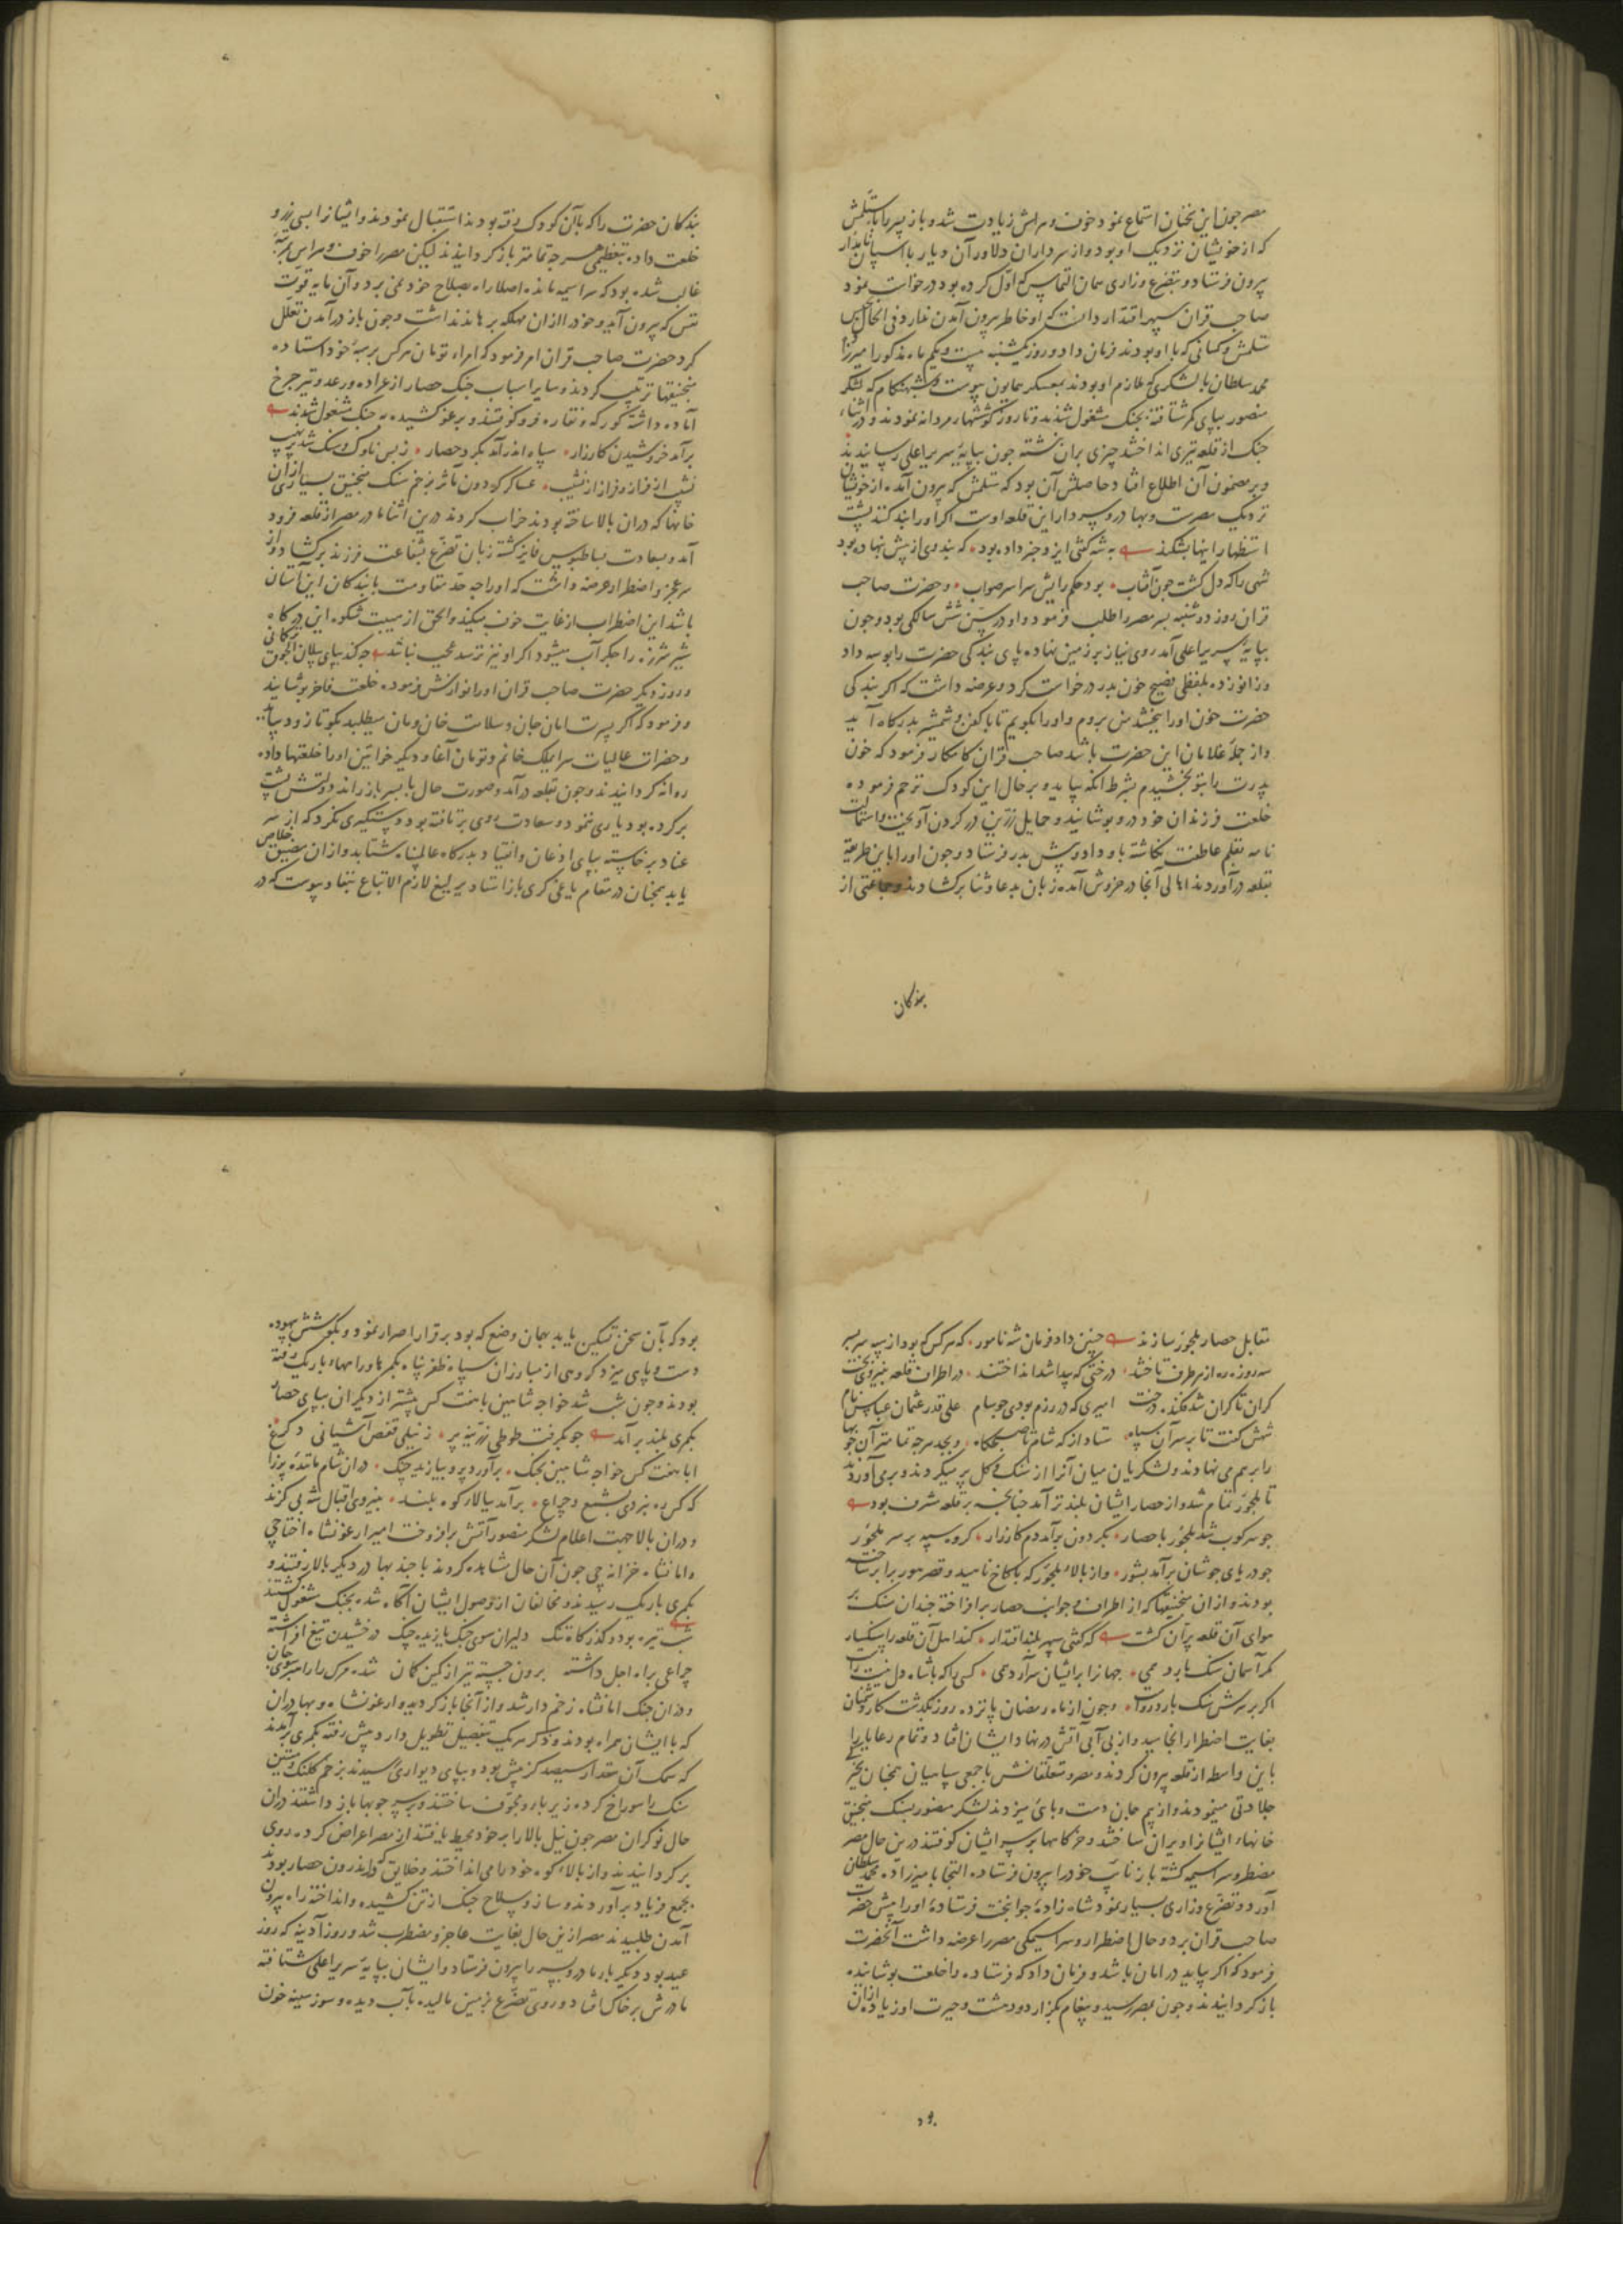 مصر چون این سخنان استماع نمود خوف و هراسش زیادت شد و باز پسر را با ستلمش
که از خویشان نزدیک او بود و از سرداران دلاور آن دیار با اسپان نامدار
بیرون فرستاد و بتضرع و زاری همان التماس که اول کرده بود درخواست نمود
صاحب قران سپهر اقتدار دانست که او خاطر بیرون آمدن ندارد فی الحال بحبس
ستلمش و کسانی که با او بودند فرمان داد و روز یکشنبه بیست و یکم ماه مذکور امیرزا
محمد سلطان با لشکری که ملازم او بودند بمعسکر همایون پیوست و شبهنکام که لشکر
منصور بپای کمر شتافته بجنک مشغول شدند و تا روز کوششها مردانه نمودند و در اثناء
جنک از قلعه تیری انداختند چیزی بران نبشته چون بپایه سریر اعلی رسانیدند
و بر مضمون آن اطلاع افتاد حاصلش آن بود که ستلمش که بیرون آمده از خویشان
نزدیک مصرست و بهادر و سپردار این قلعه اوست اگر او را بند کنند پشت
استظهار اینها بشکند به شه کفتی ایزد خبر داده بود که بند وی از پیش بنهاده بود
شهی را که دل کشت چون آفتاب بود حکم رایش سراسر صواب و حضرت صاحب
قران روز دوشنبه پسر مصر را طلب فرمود و او در سن شش سالکی بود و چون
بپایه سریر اعلی آمد روی نیاز بر زمین نهاده پای بندکی حضرت را بوسه داد
و زانو زده بلفظی فصیح خون پدر درخواست کرد و عرضه داشت که اکر بندکی
حضرت خون او را ببخشد من بروم و او را بکویم تا با کفن و شمشیر بدرکاه آید
و از جمله غلامان این حضرت باشد صاحب قران کامکار فرمود که خون
پدرت را بتو بخشیدم بشرط آنکه بیاید و بر حال این کودک ترحم فرموده
خلعت فرزندان خود درو پوشانید و حمایل زرین در کردن آویخت و استمالت
نامه بقلم عاطفت نکاشته باو داد و پیش پدر فرستاد و چون او را باین طریقه
بقلعه درآوردند اهالی آنجا در خروش آمده زبان بدعا و ثنا برکشادند و جماعتی از
بندکان
بندکان حضرت را که با آن کودک رفته بودند استقبال نمودند و ایشانرا بسی زر و
خلعت داده بتعظیمی هر چه تمامتر بازکردانیدند لیکن مصر را خوف و هراس بمرتبه
غالب شده بود که سراسیمه مانده اصلا راه بصلاح خود نمی برد و آن مایه قوت
نفس که بیرون آید و خود را از آن مهلکه برهاند نداشت و چون باز در آمدن تعلل
کرد حضرت صاحب قران امر فرمود که امراء تومان هرکس بر سیبه خود استاده
منجنیقها ترتیب کردند و سایر اسباب جنک حصار از عراده و رعد و تیر چرخ
آماده داشته کورکه و نقاره فروکوفتند و برغو کشیده به جنک مشغول شدند
برآمد خروشیدن کارزار سپاه اندرآمد بکرد حصار ز بس ناوک و سنک شد پر نهیب
نشیب از فراز و فراز از نشیب عساکر کردون مآثر بزخم سنک منجنیق بسیاری از آن
خانها که دران بالا ساخته بودند خراب کردند درین اثنا مادر مصر از قلعه فرود
آمد و بسعادت بساطبوس فایز کشته زبان تضرع بشفاعت فرزند برکشاد و از
سر عجز و اضطرار عرضه داشت که او را چه حد مقاومت با بندکان این آستان
باشد این اضطراب از غایت خوف میکند و الحق از هیبت شکوه این درکاه
شیر شرزه را جکر آب میشود اکر او نیز ترسد عجب نباشد چه کند بپای پیلان
و روز دیکر حضرت صاحب قران او را نوازش فرموده خلعت فاخر پوشانید
و فرمود که اکر پسرت امان جان و سلامت خان و مان میطلبد بکو تا زود بیاید
و حضرات عالیات سرایملک خانم و تومان آغا و دیکر خواتین او را خلعتها داده
روانه کردانیدند و چون بقلعه درآمد و صورت حال با پسر باز راند دولتش پشت
برکرده بود یاری ننمود و سعادت روی برتافته بود دستکیری نکرد که از سر
عناد برخاسته بپای اذعان و انقیاد بدرکاه عالمپناه شتابد و از آن مضیق خلاص
یابد همچنان در مقام یاغی کری بازاستاد یرلیغ لازم الاتباع بنفاذ پیوست که در
مقابل حصار ملجور سازند چنین داد فرمان شه نامور که هر کس که بود از سپه سربسر
سه روزه ره از هر طرف تاختند درختی که پیدا شد انداختند در اطراف قلعه بنیروی بخت
کران تا کران شد فکنده درخت امیری که در رزم بودی چو سام علی قدر عثمان عباس نام
شهش کفت تا بر سر آن سپاه ستاد از که شام تا صبحکاه و بجد هر چه تمامتر آن چوبها
را بر هم می نهادند و لشکریان میان آنرا از سنک و کل پر میکردند و برمی آوردند
تا ملجور تمام شد و از حصار ایشان بلندتر آمد چنانچه بر قلعه مشرف بود
چو سرکوب شد ملجور با حصار بکردون برآمد دم کارزار کروه سپه بر سر ملجور
چو دریای جوشان برآمد بشور و از بالاء ملجور که با کاخ ناهید و قصر هور برابر ساخته
بودند و از آن منجنیقها که از اطراف و جوانب حصار برافراخته چندان سنک بر
هوای آن قلعه پران کشت که کفتی سپهر بلند اقتدار کند اهل آن قلعه را سنکسار
مکر آسمان سنک بارد همی جهانرا بر ایشان سرآرد دمی کسی را که با شاه دل نیست راست
اکر بر سرش سنک بارد رواست و چون از ماه رمضان پانزده روز بکذشت کار دشمنان
بغایت اضطرار انجامید و از بی آبی آتش در نهاد ایشان افتاد و تمام رعایا را
باین واسطه از قلعه بیرون کردند و مصر و متعلقانش با جمعی سپاهیان همچنان
جلادتی مینمودند و از بیم جان دست و پائی میزدند لشکر منصور بسنک منجنیق
خانهاء ایشانرا ویران ساختند و خرکاهها بر سر ایشان کوفتند درین حال مصر
مضطر و سراسیمه کشته باز نایب خود را بیرون فرستاده التجا بامیرزاده محمد سلطان
آورد و تضرع و زاری بسیار نمود شاه زاده جوانبخت فرستاده او را پیش حضرت
صاحب قران برد و حال اضطرار و سراسیمکی مصر را عرضه داشت آنحضرت
فرمود که اکر بیاید در امان باشد و فرمان داد که فرستاده را خلعت پوشانیده
بازکردانیدند و چون بمصر رسید و پیغام بکزارد دهشت و حیرت او زیاده از آن
بود
بود که بآن سخن تسکین یابد بهمان وضع که بود برقرار اصرار نمود و بکوشش بیهوده
دست و پای میزد کروهی از مبارزان سپاه ظفرپناه بکمرها و راههاء باریک رفته
بودند و چون شب شد خواجه شاهین با هفت کس پیشتر از دیکران بپای حصار
بکمری بلند برآمد چو بکرفت طوطی زرینه پر ز نیلی قفص آشیانی دکر
ابا هفت کس خواجه شاهین بجنک برآورد پر و بیازید چنک دران شام
که کس ره نبردی بشمع و چراغ برآمد ببالاء کوه بلند بنیروی اقبال شه بی کزند
و دران بالا جهت اعلام لشکر منصور آتش برافروخت امیر ارغونشاه اختاجی
و امانشاه خزانه چی چون آن حال مشاهده کردند با چند بهادر دیکر بالا رفتند و
بکمری باریک رسیدند و مخالفان از وصول ایشان آکاه شده بجنک مشغول کشتند
شب تیره بود و کذرکاه تنک دلیران سوی جنک یازیده چنک درخشیدن تیغ افراشته
چراغی براه اجل داشته برون جسته تیر از کمین کمان شده مرک را رامبر سوی جان
و دران جنک امانشاه زخم دار شد و از آنجا بازکردید و ارغونشاه و بهادران
که با ایشان همراه بودند و ذکر هر یک بتفصیل تطویل دارد پیش رفته بکمری برآمدند
که سمک آن مقدار سیصد کز بیش بود و بپای دیواری رسیدند بزخم کلنک و متین
سنک را سوراخ کرده زیر باره مجوف ساختند و بر سر چوبها بازداشتند دران
حال نوکران مصر چون نیل بلا را بر خود محیط یافتند از مصر اعراض کرده روی
برکردانیدند و از بالاء کوه خود را می انداختند و خلایق که در اندرون حصار بودند
بجمع فریاد برآوردند و ساز و سلاح جنک از تن کشیده و انداخته راه بیرون
آمدن طلبیدند مصر ازین حال بغایت عاجز و مضطرب شد و روز آدینه که روز
عید بود دیکر بار مادر و پسر را بیرون فرستاد و ایشان بپایه سریر اعلی شتافته
مادرش بر خاک افتاد و روی تضرع بر زمین مالید بآب دیده و سوز سینه خون